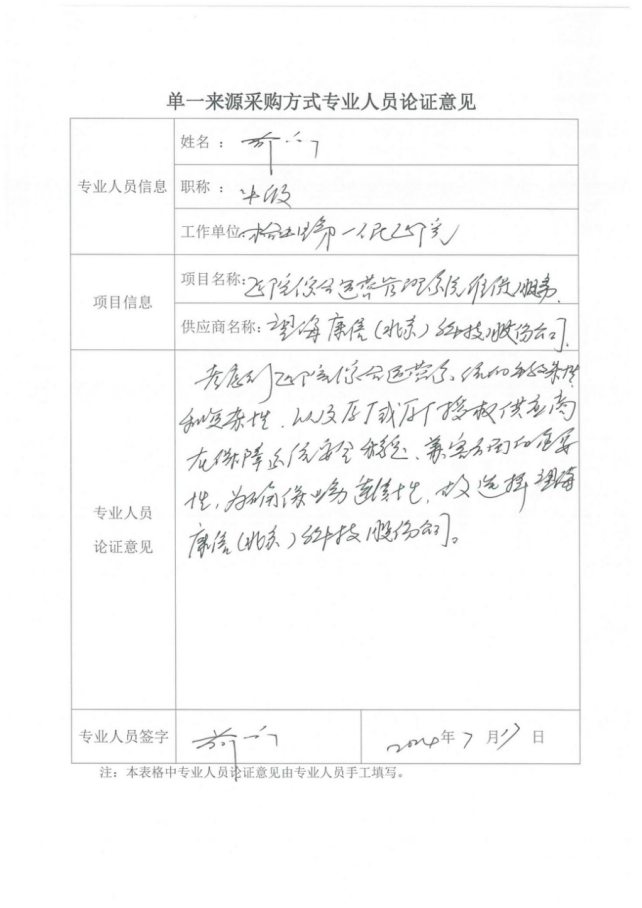 单一来源采购方式专业人员论证意见
专业人员信息
姓名：
职称：
工作单位: 第一人民医院
项目信息
项目名称: 医院综合运营管理系统维保服务
供应商名称: 望海康信(北京)科技股份公司
专业人员
论证意见
考虑到医院综合运营系统的
和复杂性,以及原厂或原厂授权供应商
在保障系统安全稳定、兼容方面的重要
性,为确保业务连续性,故选择望海
康信(北京)科技股份公司。
专业人员签字
2024年7月17日
注：本表格中专业人员论证意见由专业人员手工填写。